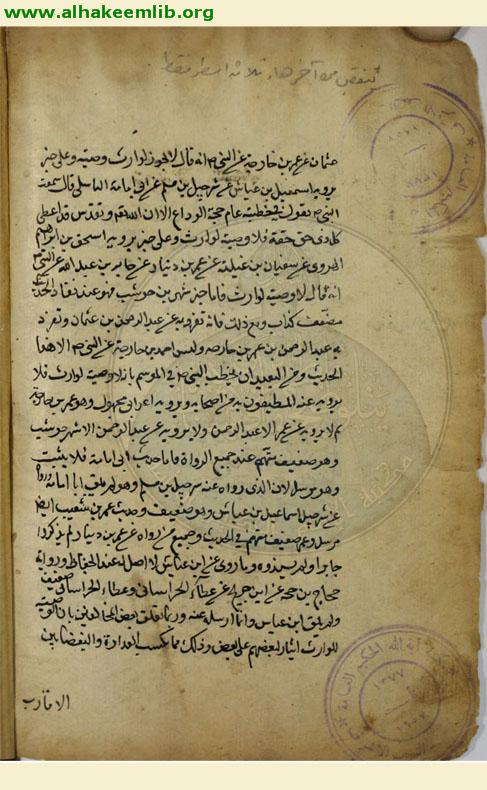 www.alhakeemlib.org
ينقص من آخرها ثلاثة اسطر فقط
عثمان عن عمر بن خارجة عن النبي ص انه قال لا يجوز لوارث وصية وعلى خبر
يرويه اسمعيل بن عياش عن شرحبيل بن مسلم عن ابي امامة الباهلي قال سمعت
النبي ص يقول في خطبته عام حجة الوداع الا ان الله قد اعطى
كل ذي حق حقه فلا وصية لوارث وعلى خبر يرويه اسحق بن ابراهيم
الهروي عن سفيان بن عيينة عن عمرو بن دينار عن جابر بن عبد الله عن النبي ص
انه قال لا وصية لوارث فاما خبر شهر بن حوشب فهو عند نقاد الحديث
مضعف كذاب ومع ذلك فانه تفرد به عن عبد الرحمن بن عثمان وتفرد
به عبد الرحمن عن عمر بن خارجة وليس لعمر بن خارجة عن النبي ص الا هذا
الحديث ومن البعيد ان يخطب النبي ص في الموسم بانه لا وصية لوارث فلا
يرويه عنه المطيفون به من اصحابه ويرويه اعرابي مجهول وهو عمر بن خارجة
ثم لا يرويه عن عمر الا عبد الرحمن ولا يرويه عن عبد الرحمن الا شهر بن حوشب
وهو ضعيف متهم عند جميع الرواة فاما حديث ابي امامة فلا يثبت
وهو مرسل لان الذي رواه عنه شرحبيل بن مسلم وهو لم يلق ابا امامة ورواه
عن شرحبيل اسماعيل بن عياش وهو ضعيف وحديث عمرو بن شعيب ايضا
مرسل وعمرو ضعيف متهم في الحديث وجميع من رواه عن عمرو بن دينار لم يذكروا
جابرا ولم يسندوه وما روي عن ابن عباس لا اصل له عند الحفاظ ورواية
حجاج بن عن ابن جريج عن عطاء الخراساني وعطاء الخراساني ضعيف
ولم يلق ابن عباس وانما ارسله عنه وربما تعلق بعض المخالفين بان الوصية
للوارث ايثار لبعضهم على بعض وذلك مما يكسب العداوة والبغضاء بين
الاقارب